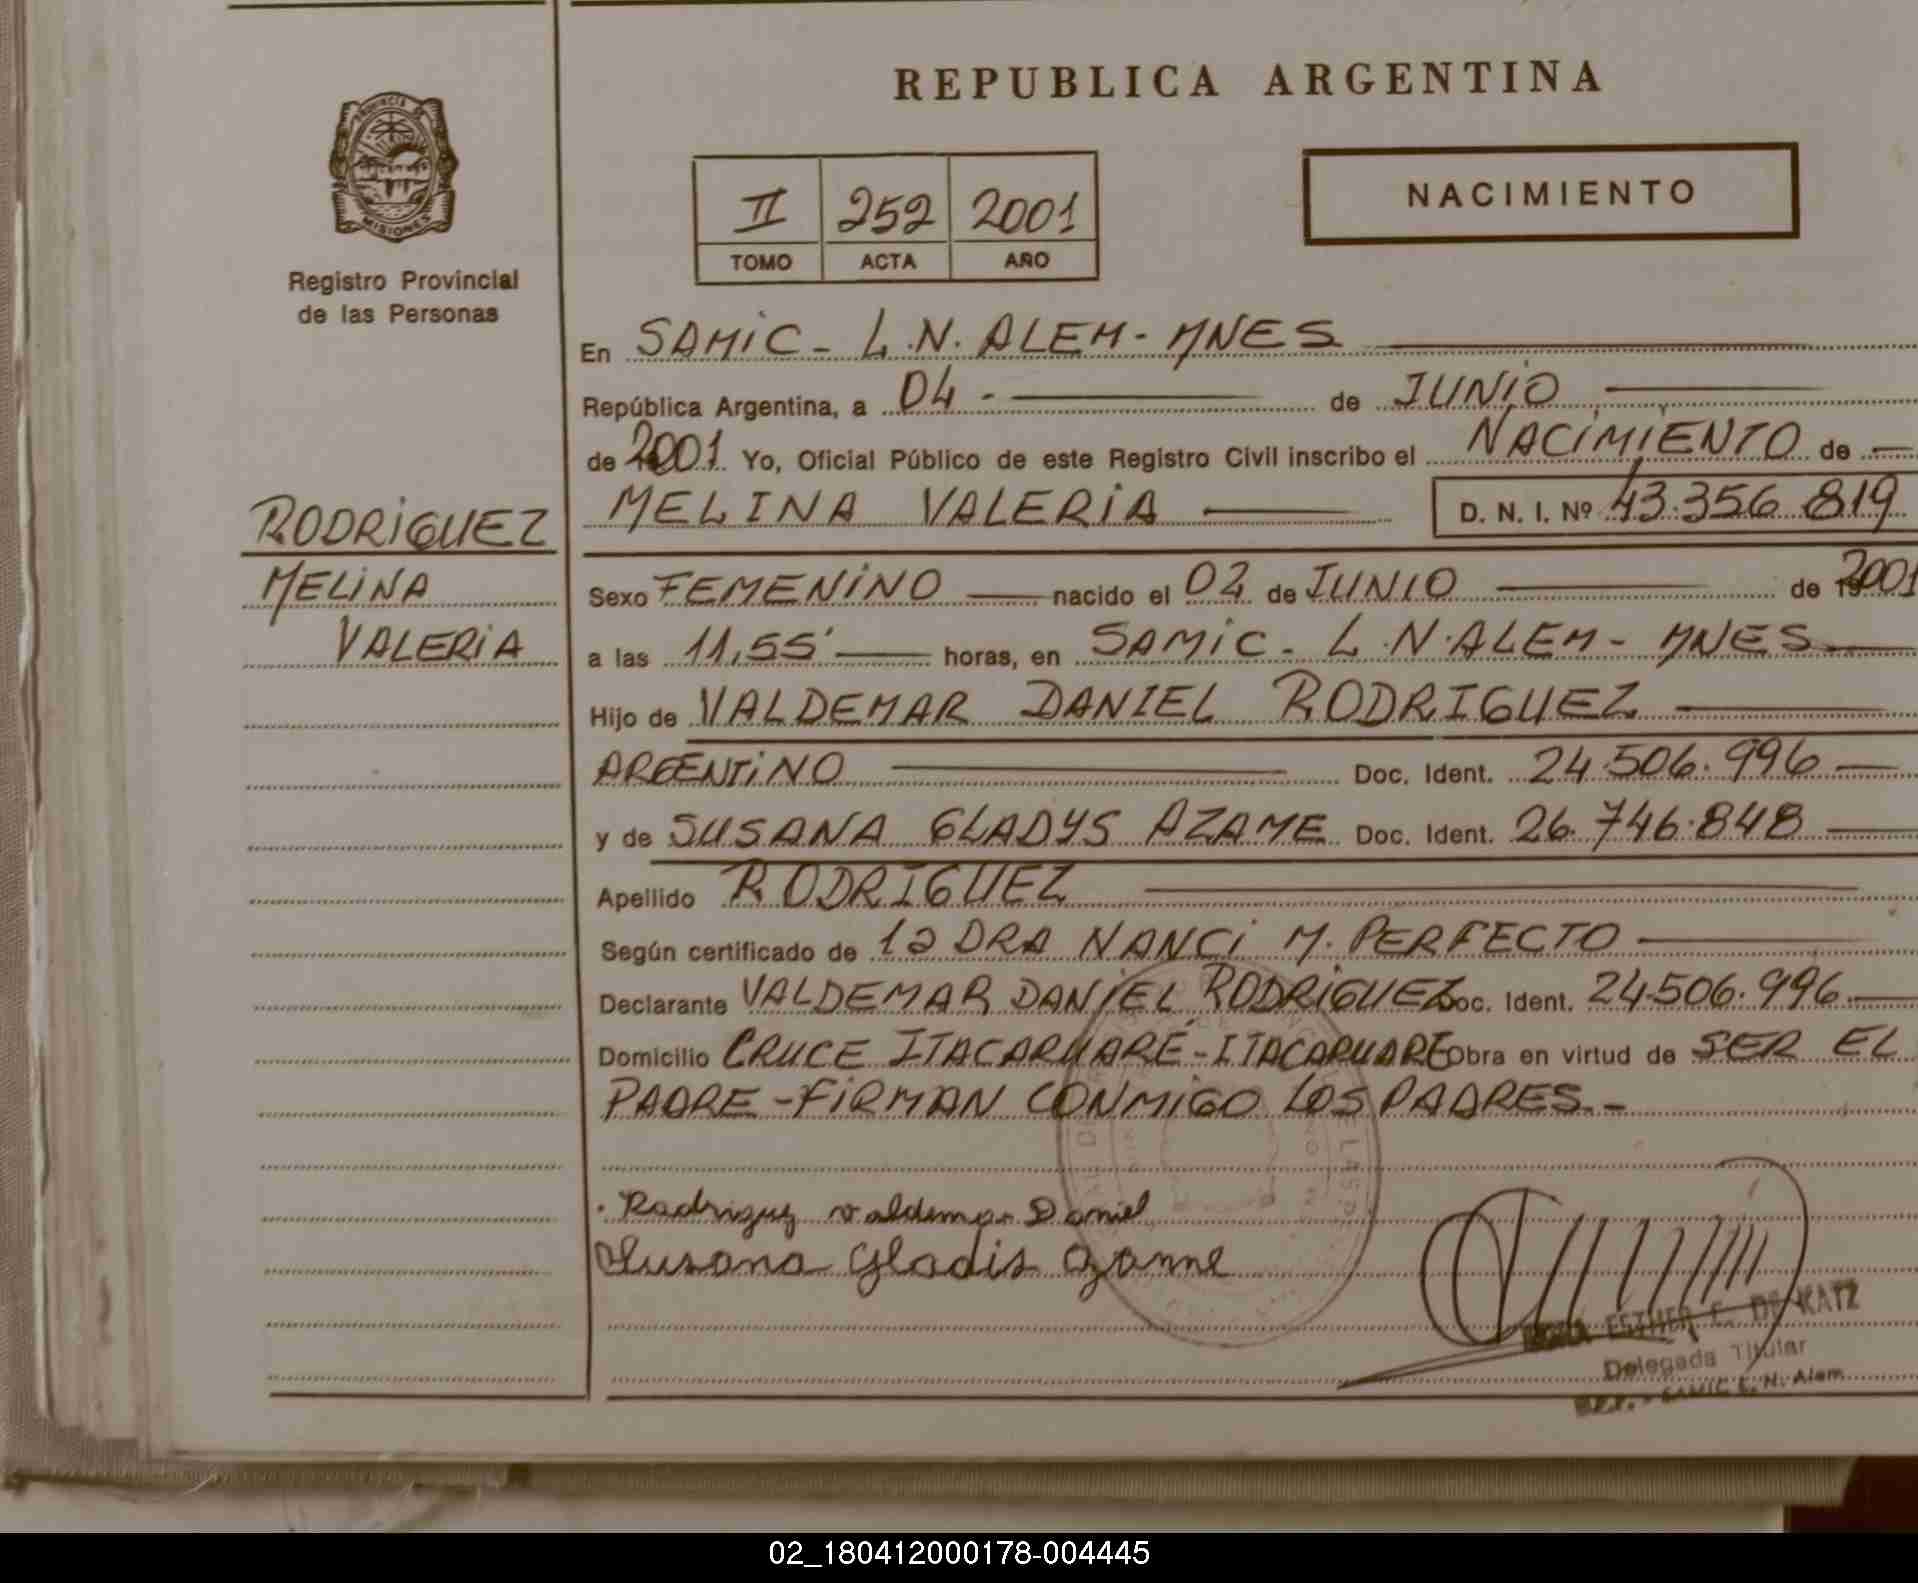 REPUBLICA ARGENTINA
PROVINCIA DE
MISIONES
Registro Provincial
de las Personas
II 252 2001
TOMO ACTA AÑO
NACIMIENTO
En SAMIC - L.N. ALEM - MNES
República Argentina, a 04 - de JUNIO
de 2001 Yo, Oficial Público de este Registro Civil inscribo el NACIMIENTO de
MELINA VALERIA D. N. I. Nº 43.356.819
RODRIGUEZ
MELINA
VALERIA
Sexo FEMENINO nacido el 02 de JUNIO de 2001
a las 11,55' horas, en SAMIC - L.N. ALEM - MNES
Hijo de VALDEMAR DANIEL RODRIGUEZ
ARGENTINO Doc. Ident. 24.506.996
y de SUSANA GLADYS AZAME Doc. Ident. 26.746.848
Apellido RODRIGUEZ
Según certificado de la DRA NANCI M. PERFECTO
Declarante VALDEMAR DANIEL RODRIGUEZ Doc. Ident. 24.506.996
Domicilio CRUCE ITACARUARÉ - ITACARUARE Obra en virtud de SER EL
PADRE - FIRMAN CONMIGO LOS PADRES.-
Rodriguez Valdemar Daniel
Susana Gladis Azame
ESTHER E. DE KATZ
Delegada Titular
SAMIC L. N. Alem
02_180412000178-004445